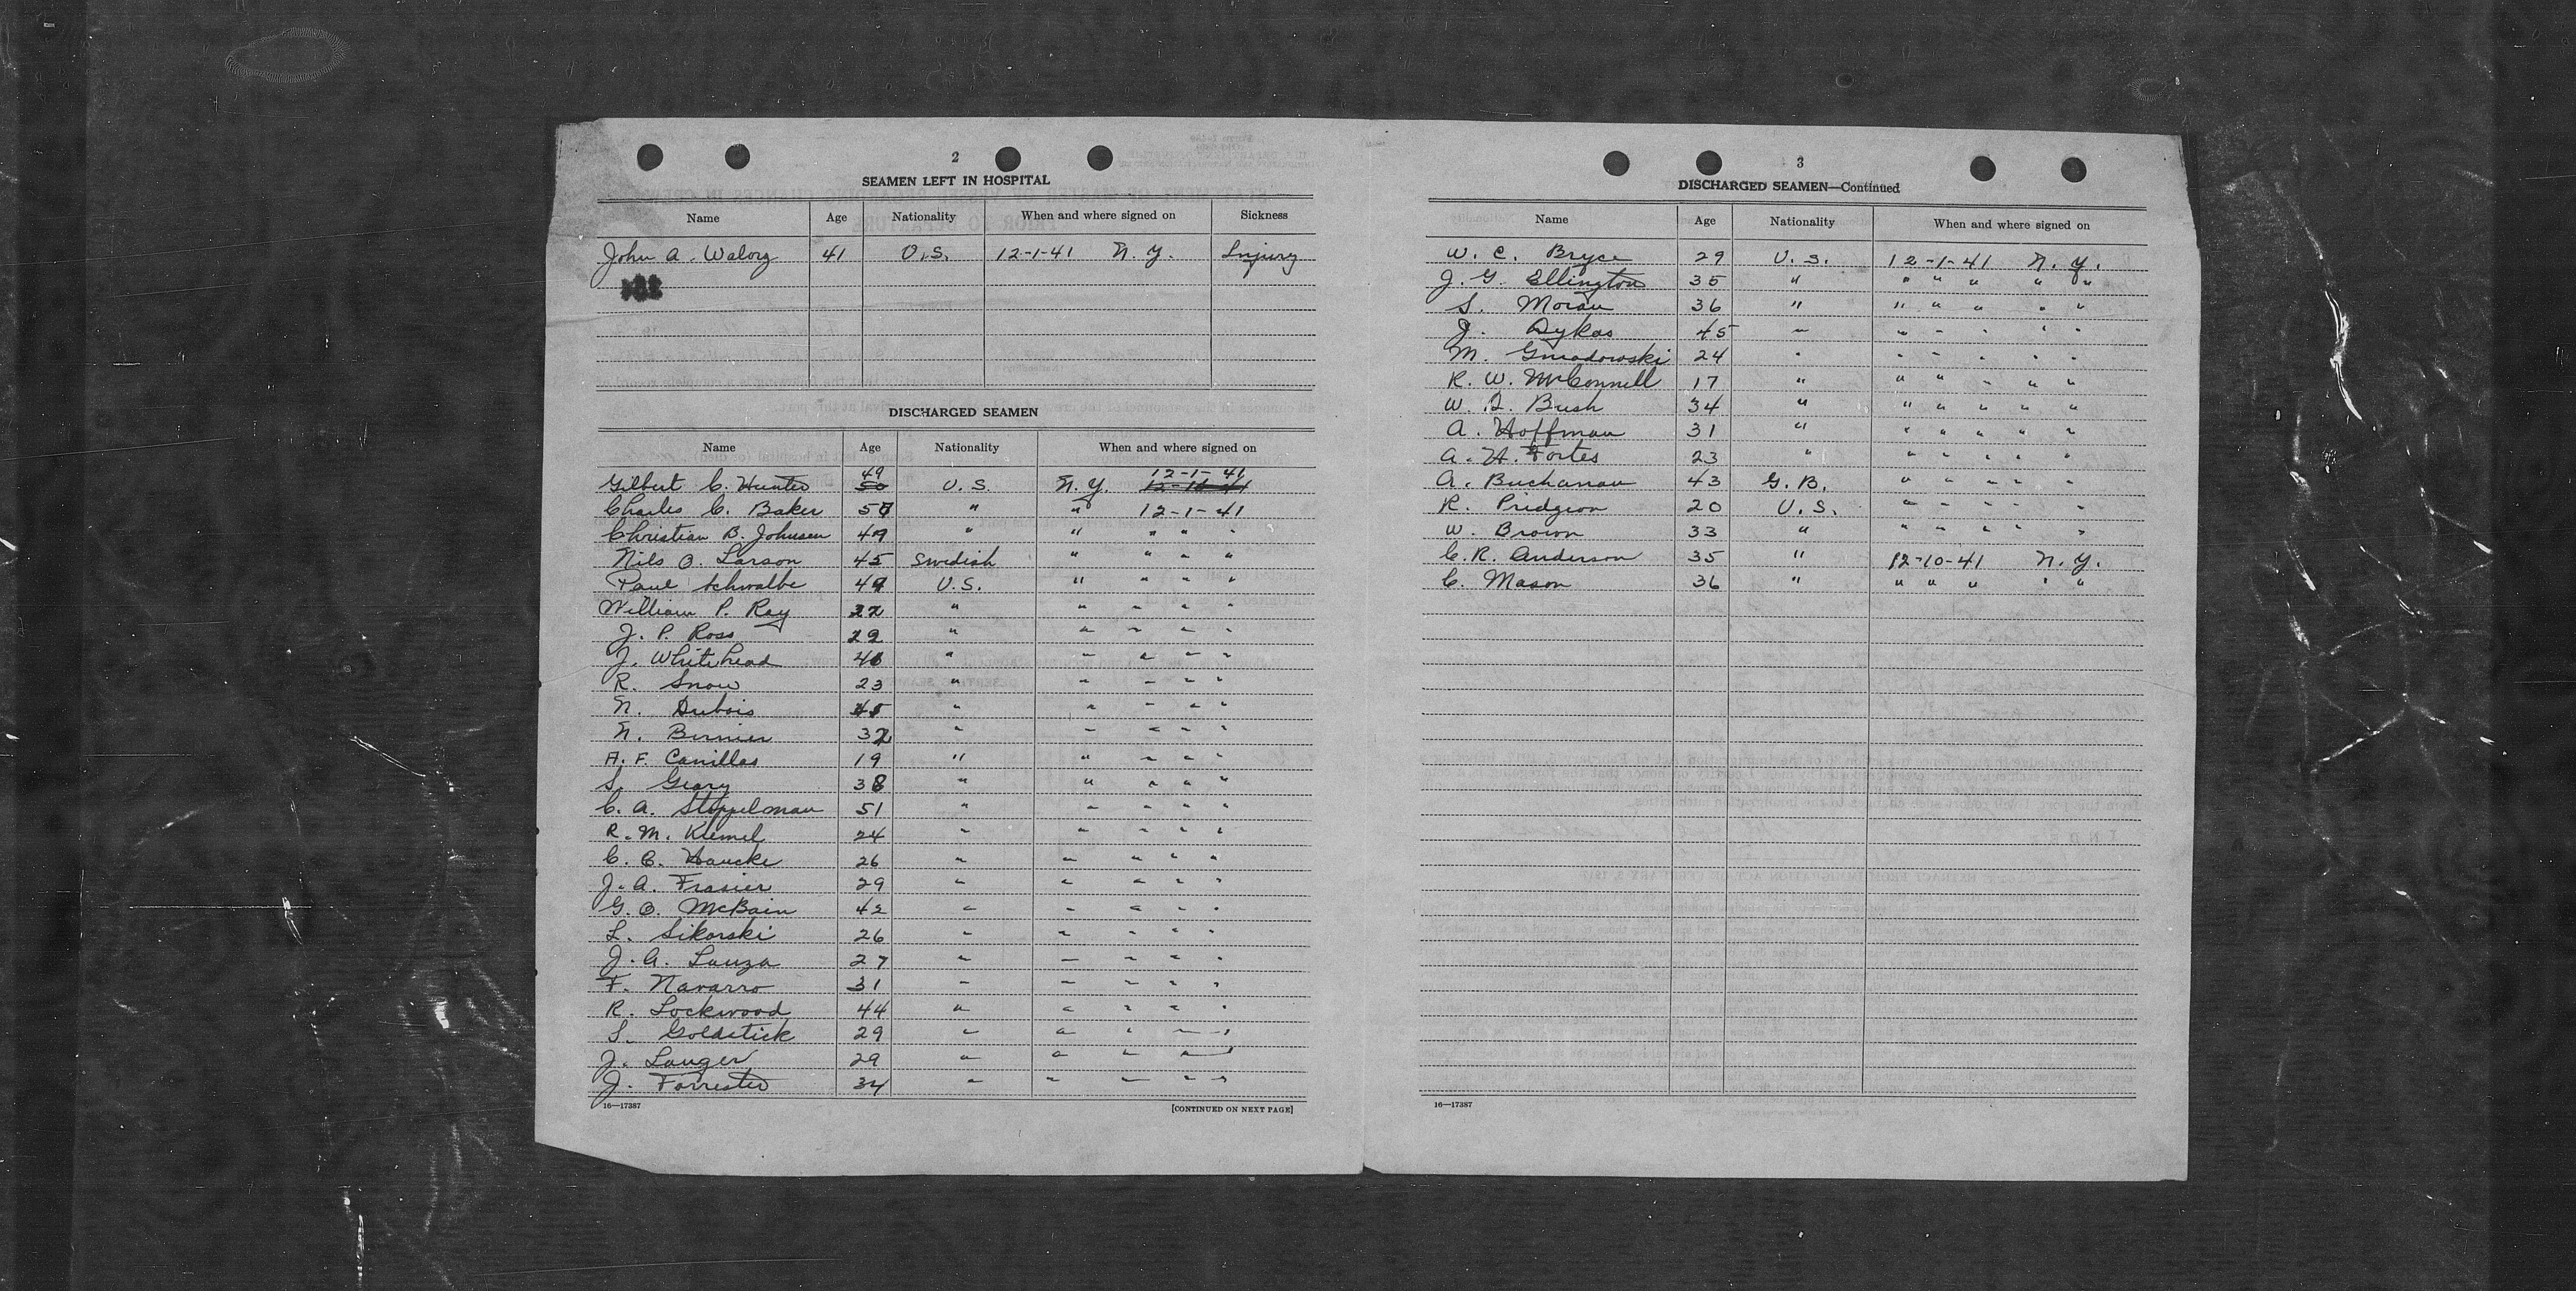 2
SEAMEN LEFT IN HOSPITAL
Name Age Nationality When and where signed on Sickness
John A. Walorz 41 U.S. 12-1-41 N.Y. Injury
DISCHARGED SEAMEN
Name Age Nationality When and where signed on
49 12-1-41
Gilbert C. Hunter 50 U.S. N.Y. 12-10-41
Charles C. Baker 57 " " 12-1-41
Christian B. Johnsen 49 " " " " "
Nils O. Larson 45 Swedish " " " "
Paul Schwalbe 49 U.S. " " " "
William P. Ray 32 " " " " "
J. P. Ross 29 " " " " "
J. Whitehead 40 " " " " "
R. Snow 23 " " " " "
N. Dubois 45 " " " " "
N. Bernier 32 " " " " "
A. F. Canillas 19 " " " " "
S. Geary 38 " " " " "
C. A. Stoppelman 51 " " " " "
R. M. Kiemel 24 " " " " "
C. C. Haucke 26 " " " " "
J. A. Frasier 29 " " " " "
G. O. McBain 42 " " " " "
L. Sikorski 26 " " " " "
J. A. Lauza 27 " " " " "
F. Navarro 31 " " " " "
R. Lockwood 44 " " " " "
S. Goldstick 29 " " " " "
J. Langer 29 " " " " "
J. Forrester 34 " " " " "
16—17387 [CONTINUED ON NEXT PAGE]
3
DISCHARGED SEAMEN—Continued
Name Age Nationality When and where signed on
W. C. Bryce 29 U.S. 12-1-41 N.Y.
J. G. Ellington 35 " " " " " "
S. Moran 36 " " " " " "
J. Dykas 45 " " " " " "
M. Gniadowski 24 " " " " " "
R. W. McConnell 17 " " " " " "
W. I. Bush 34 " " " " " "
A. Hoffman 31 " " " " " "
A. H. Fortes 23 " " " " " "
A. Buchanan 43 G.B. " " " " "
R. Pridgeon 20 U.S. " " " " "
W. Brown 33 " " " " " "
C. R. Anderson 35 " 12-10-41 N.Y.
C. Mason 36 " " " " " "
16—17387